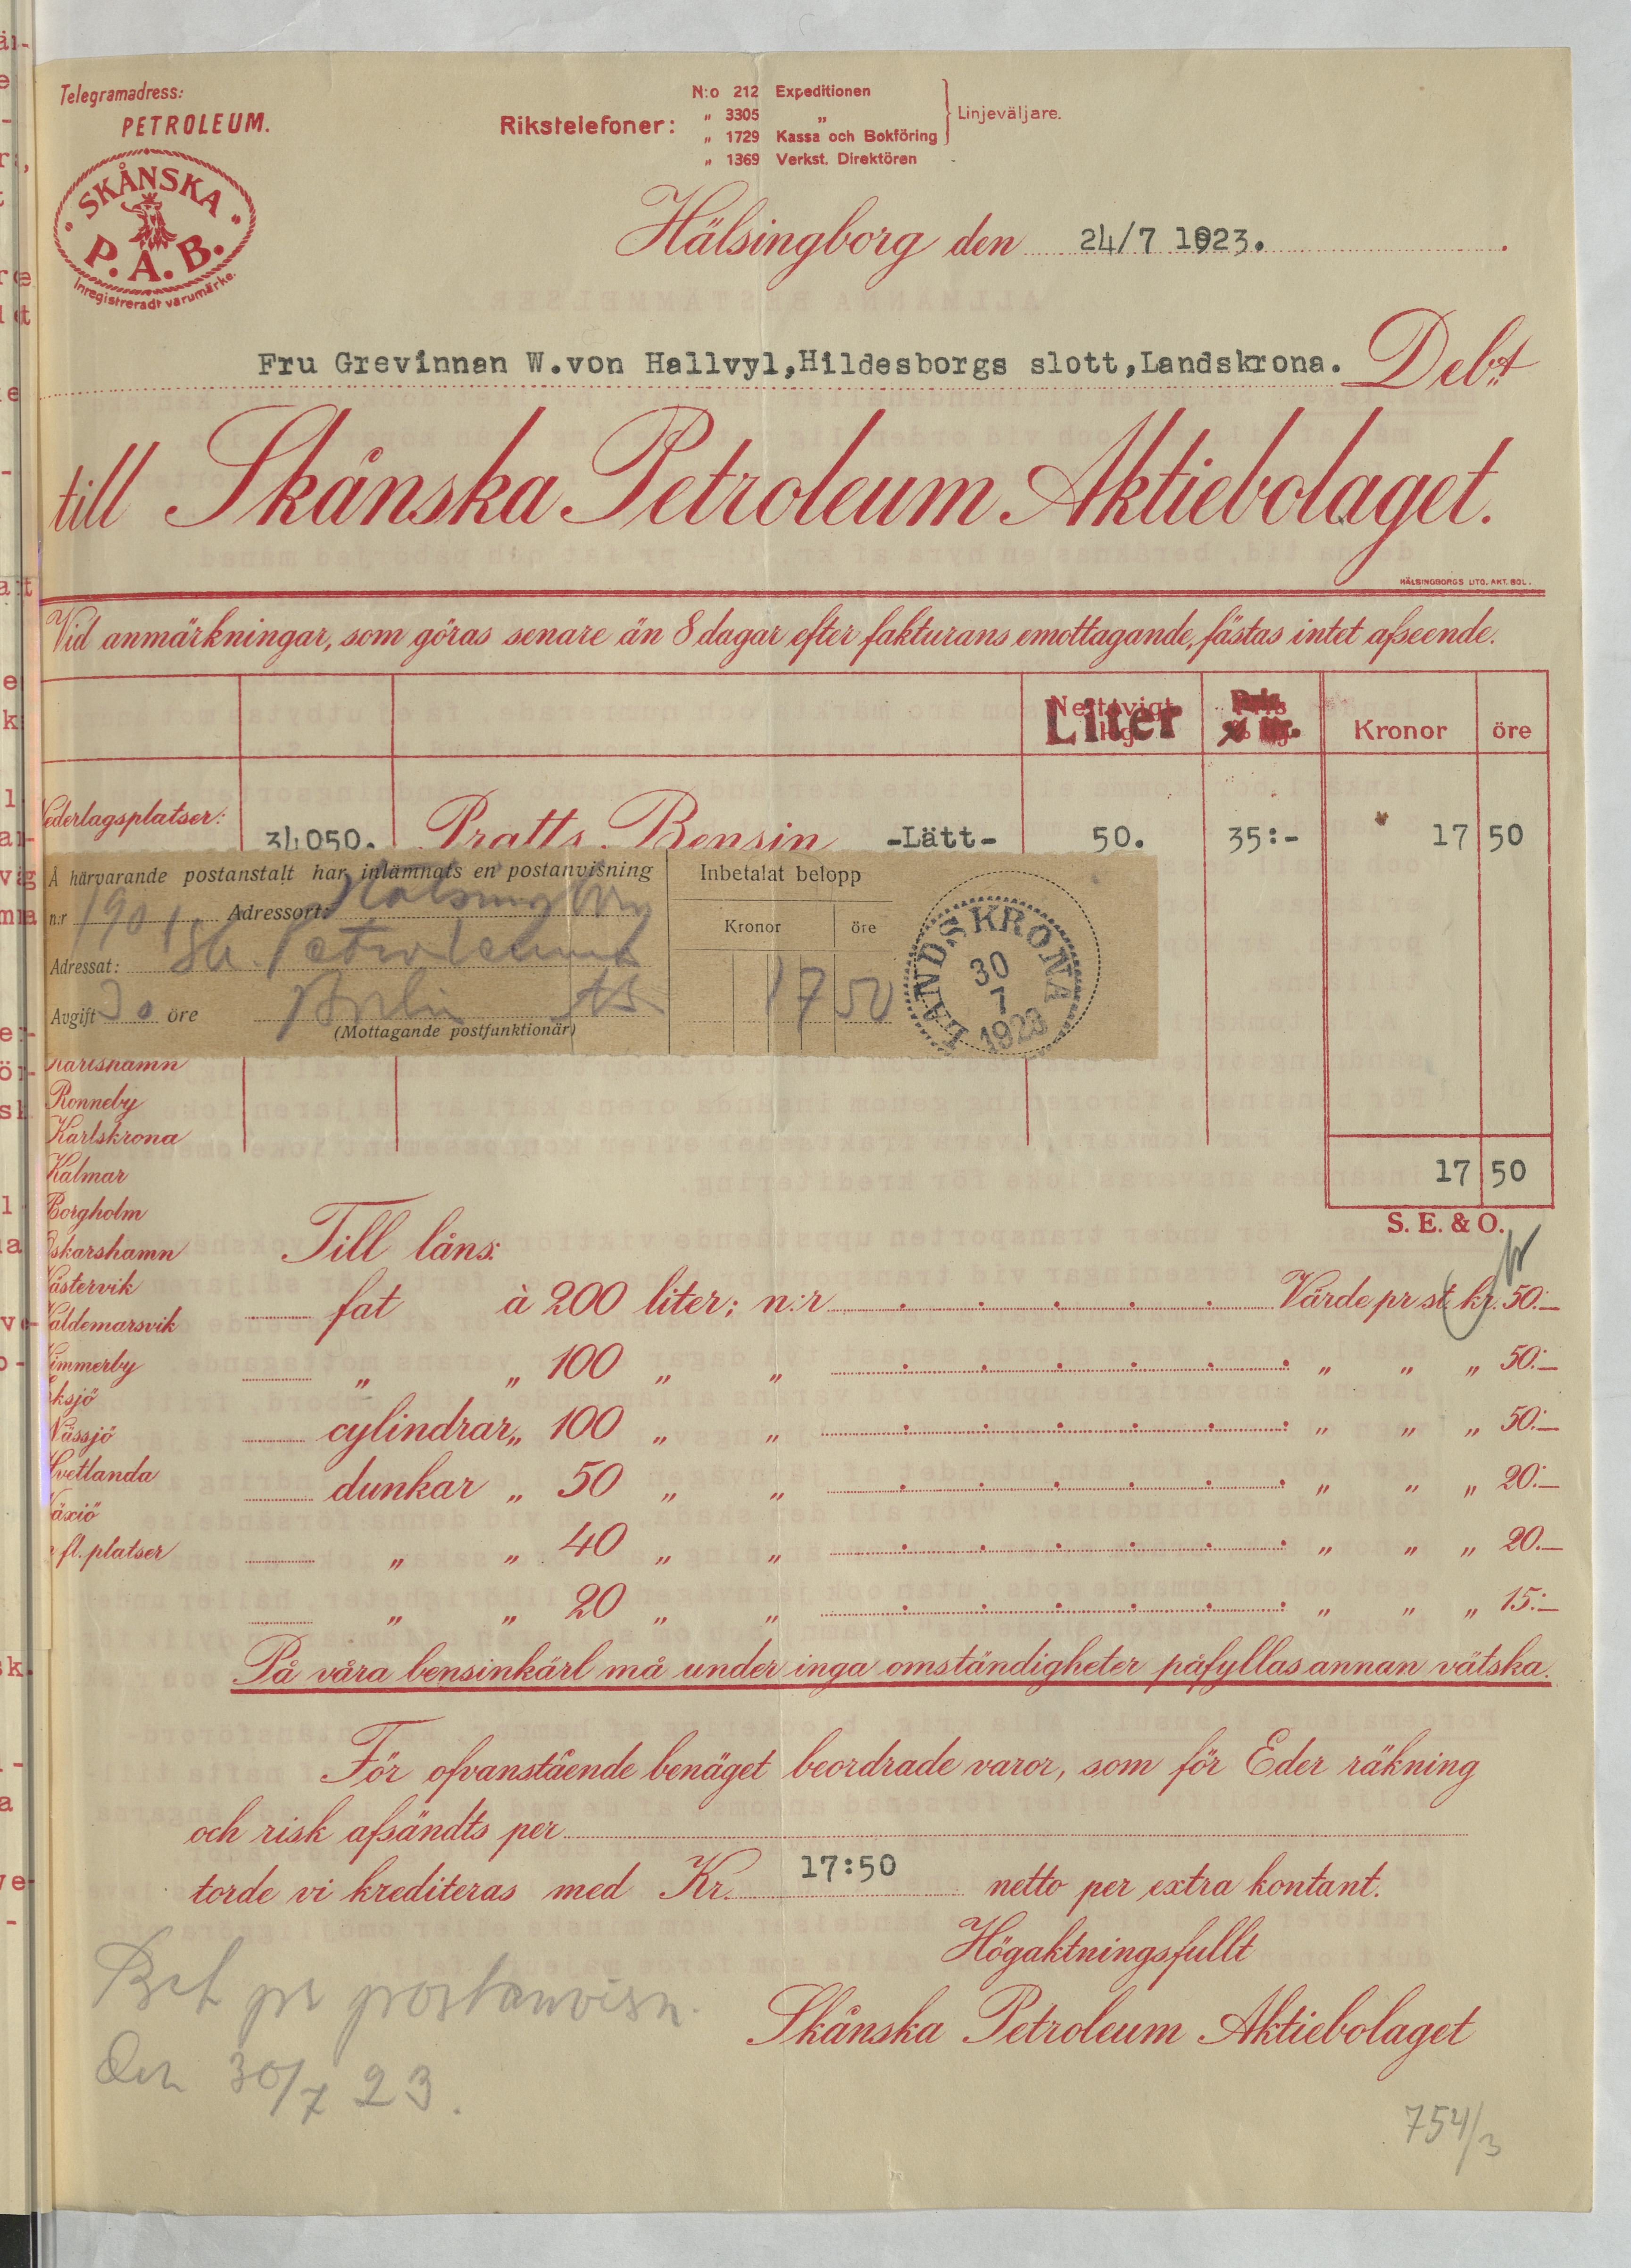 Telegramadress:
PETROLEUM.
Rikstelefoner:
N:o 212 Expeditionen
„ 3305 „
„ 1729 Kassa och Bokföring
„ 1369 Verkst. Direktören
Linjeväljare.
SKÅNSKA
P. A. B.
Inregistreradt varumärke.
Hälsingborg den 24/7 1923.
Fru Grevinnan W.von Hallvyl,Hildesborgs slott,Landskrona. Deb:t
till Skånska Petroleum Aktiebolaget.
HÄLSINGBORGS LITO. AKT. BOL.
Vid anmärkningar, som göras senare än 8 dagar efter fakturans emottagande, fästas intet afseende.
Liter Kronor öre
Nederlagsplatser:
34050. Pratts Bensin -Lätt- 50. 35:- 17 50
Å härvarande postanstalt har inlämnats en postanvisning
n:r 1901 Adressort: Hälsingborg
Adressat: Sk. Petroleum
Avgift 30 öre
(Mottagande postfunktionär)
Inbetalat belopp
Kronor öre
17 50
LANDSKRONA
30
7
1923
Karlshamn
Ronneby
Karlskrona
Kalmar
Borgholm
Oskarshamn
Västervik
Valdemarsvik
Vimmerby
Eksjö
Nässjö
Hvetlanda
Växiö
fl. platser
17 50
S. E. & O.
Till låns:
fat à 200 liter; n:r Värde pr st. kr. 50:—
„ „ 100 „ „ „ „ „ 50:—
cylindrar „ 100 „ „ „ „ „ 50:—
dunkar „ 50 „ „ „ „ „ 20:—
„ „ 40 „ „ „ „ „ 20.—
„ „ 20 „ „ „ „ „ 15:—
På våra bensinkärl må under inga omständigheter påfyllas annan vätska.
För ofvanstående benäget beordrade varor, som för Eder räkning
och risk afsändts per
torde vi krediteras med Kr. 17:50 netto per extra kontant.
Högaktningsfullt
Skånska Petroleum Aktiebolaget
Bet pr postanvisn.
den 30/7 23.
754/3